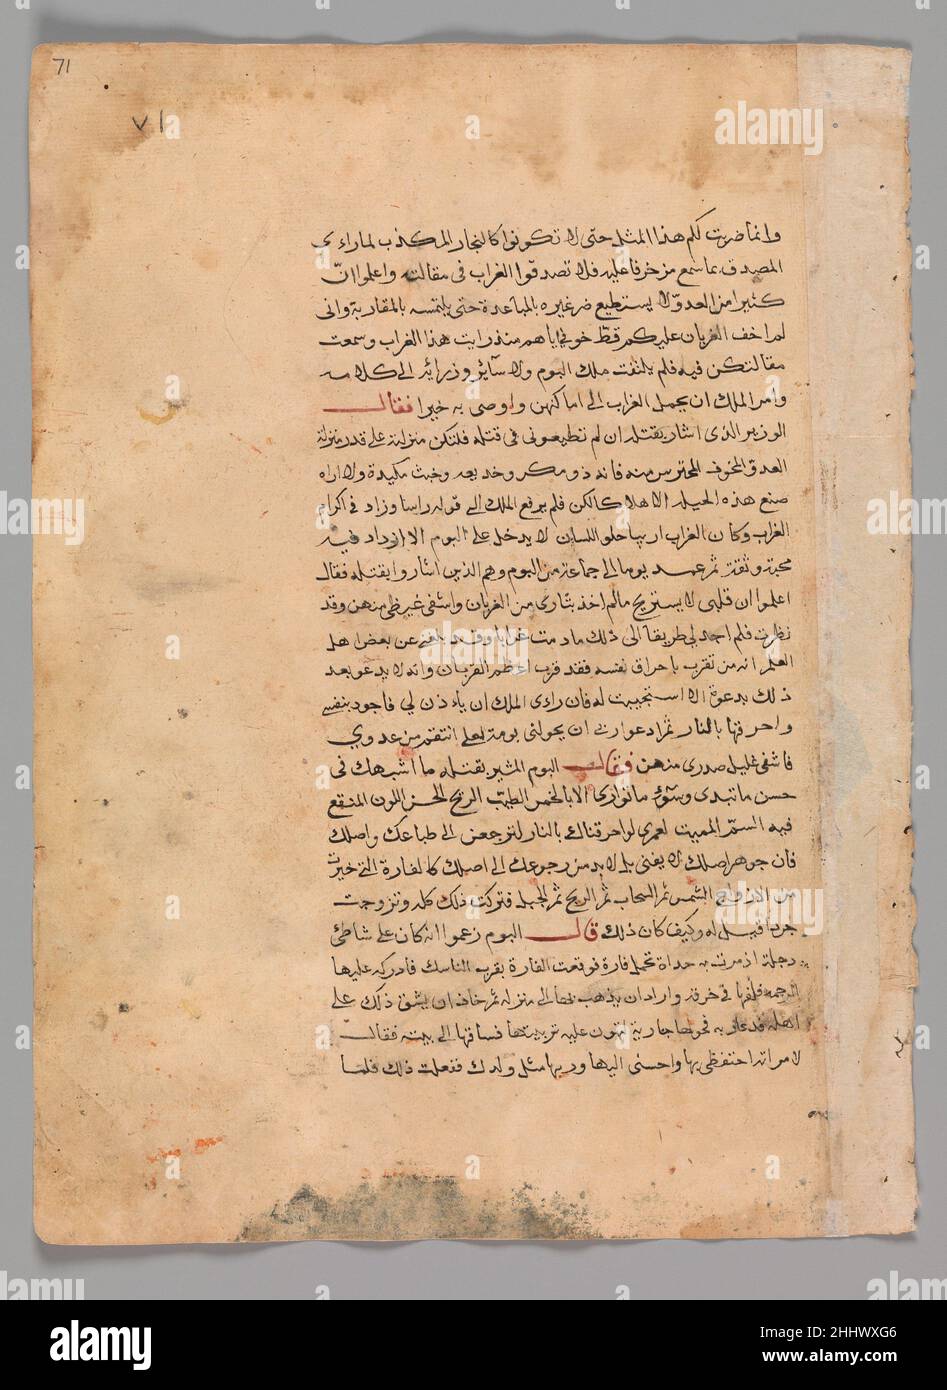 71
٧١
وانما ضربت لكم هذا المثل حتى لا تكونوا كالنجار المكذب لما راى
المصدق بما سمع من خرفا عليه فلا تصدقوا الغراب فى مقالته واعلموا انّ
كثيرا من العدوّ لا يستطيع ضر غيره بالمباعدة حتى يلتمسه بالمقاربة وانى
لم اخف الغربان عليكم قطّ خوفى اياهم منذ رايت هذا الغراب وسمعت
مقالتكن فيه فلم يلتفت ملك البوم ولا سآئر وزرائه الى كلامه
وامر الملك ان يحمل الغراب الى اماكنهن واوصى به خيرا فقال
الوزير الذى اشار بقتله ان لم تطيعونى فى قتله فلتكن منزلته على قدر منزلة
العدوّ المخوف المحترس منه فانه ذو مكر وخديعه وخبث مكيدة ولا اراه
صنع هذه الحيله الا هلاكا لكن فلم يرفع الملك الى قوله راسا وزاد فى اكرام
الغراب وكان الغراب اريبا حلو اللسان لا يدخل على البوم الا ازداد فيه
محبة وثقة ثم عمد يوما الى جماعة من البوم وهم الذين اشاروا بقتله فقال
اعلموا ان قلبى لا يستريح ما لم اخذ بثارى من الغربان واشفى غيظى منهن وقد
نظرت فلم اجد لى طريقا الى ذلك ما دمت غرابا وقد بلغنى عن بعض اهل
العلم انه من تقرب باحراق نفسه فقد قرب اعظم القربان وانه لا يدعو بعد
ذلك بدعوة الا استجيبت له فان راى الملك ان ياذن لي فاجود بنفسى
واحرقها بالنار ثم ادعوا ربى ان يحولنى بومة لعلى انتقم من عدوي
فاشفى غليل صدرى منهن فقال البوم المشير بقتله ما اشبهك فى
حسن ما تبدى وسوء ما توارى الا بالخمر الطيب الريح الحسن اللون المنقع
فيه السمّ المميت لعمرى لو احرقناك بالنار لترجعن الى طباعك واصلك
فان جوهر اصلك لا يفنى بل لا بد من رجوعك الى اصلك كالفارة التى خيرت
من الازواج الشمس ثم السحاب ثم الريح ثم الجبل فتركت ذلك كله وتزوجت
جرذا قيل له وكيف كان ذلك قال البوم زعموا انه كان على شاطئ
دجلة اذ مرت به حداة تحمل فارة فوقعت الفارة بقرب الناسك فادركه عليها
الرحمه فلفها فى خرقة واراد ان يذهب بها الى منزله ثم خاف ان يشق ذلك على
اهله فدعا ربه فحولها جارية لتهون عليه تربيتها فساقها الى بيته فقال
لامراته احتفظى بها واحسنى اليها وربيها مثل ولدك ففعلت ذلك فلما
alamy
Image ID: 2HHWXG6
www.alamy.com